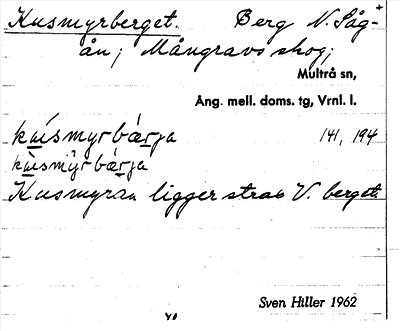 Kusmyrberget. Berg N. Såg-
ån; Mångravs skog;
Multrå sn,
Ång. mell. doms. tg, Vrnl. l.
141, 194
Kusmyran ligger strax V. berget.
Sven Hiller 1962